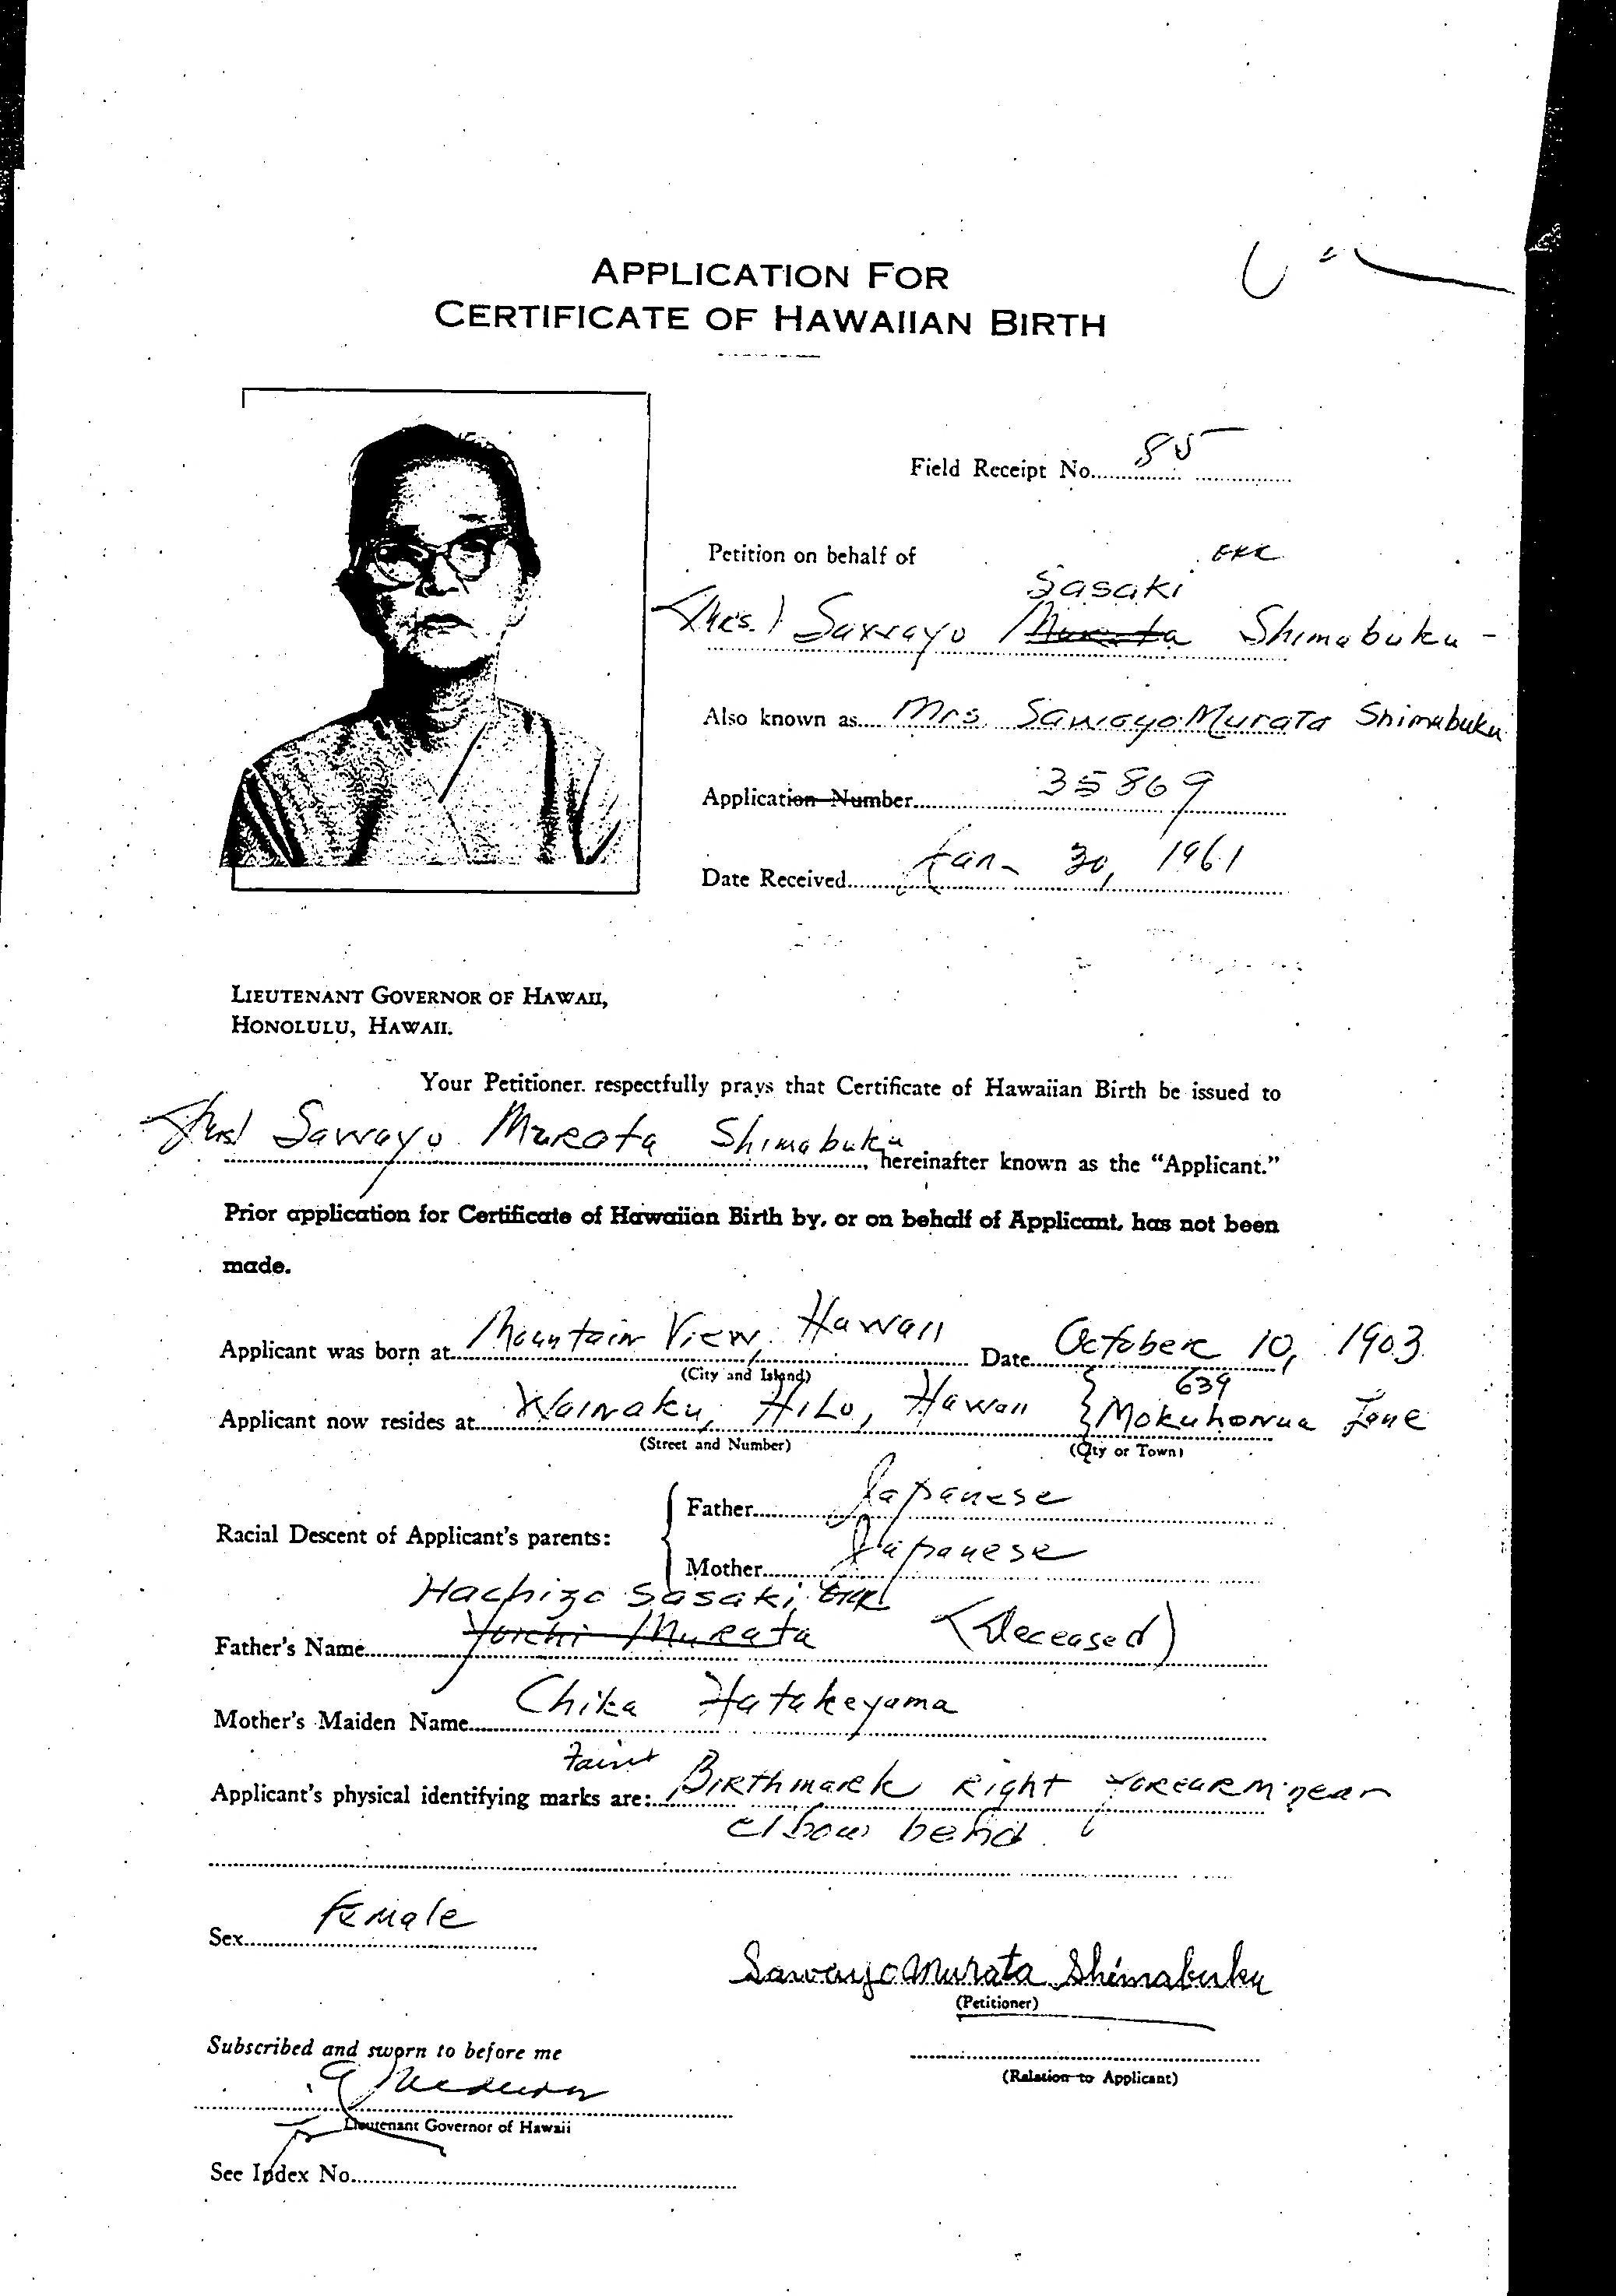 APPLICATION FOR
CERTIFICATE OF HAWAIIAN BIRTH
Field Receipt No. 85
Petition on behalf of
Sasaki
(Mrs.) Sawayo Murata Shimabuku
Also known as Mrs. Sawayo Murata Shimabuku
Application Number 35869
Date Received Jan- 30, 1961
LIEUTENANT GOVERNOR OF HAWAII,
HONOLULU, HAWAII.
Your Petitioner respectfully prays that Certificate of Hawaiian Birth be issued to
(Mrs) Sawayo Murata Shimabuku, hereinafter known as the "Applicant."
Prior application for Certificate of Hawaiian Birth by, or on behalf of Applicant, has not been
made.
Applicant was born at Mountain View, Hawaii Date October 10, 1903
(City and Island)
639
Applicant now resides at Wainaku, Hilo, Hawaii Mokuhonua Lane
(Street and Number) (City or Town)
Racial Descent of Applicant's parents:
Father Japanese
Mother Japanese
Hachizo Sasaki
Father's Name Yoichi Murata (Deceased)
Mother's Maiden Name Chika Hatakeyama
Faint
Applicant's physical identifying marks are: Birthmark Right forearm near
elbow bend
Sex Female
Sawayo Murata Shimabuku
(Petitioner)
Subscribed and sworn to before me
(Relation to Applicant)
Lieutenant Governor of Hawaii
See Index No.